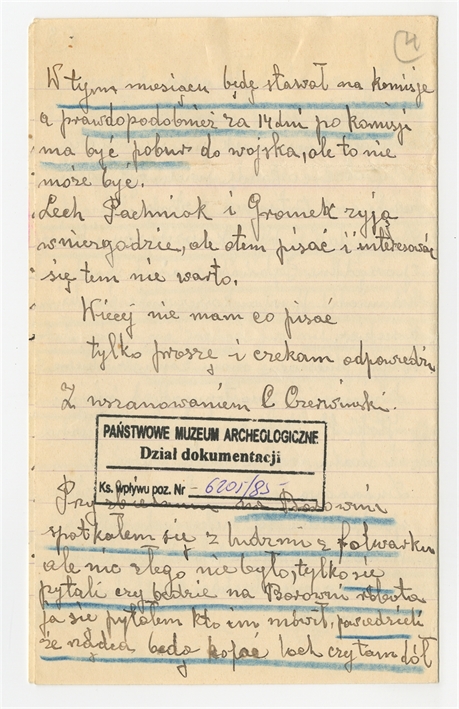 4
W tym miesiącu będę stawał na komisje
a prawdopodobnież za 14 dni po komisji
ma być pobur do wojska, ale to nie
może być.
Lech Pachniok i Gromek żyją
w niezgodzie, ale otem pisać i interesować
się tem nie warto.
Więcej nie mam co pisać
tylko proszę i czekam odpowiedzi
Z uszanowaniem C Czerwinski.
PAŃSTWOWE MUZEUM ARCHEOLOGICZNE
Dział dokumentacji
Ks. wpływu poz. Nr - 6201/85 -
Przy na Borowni
spotkałem się z ludzmi z folwarku
ale nic złego nie było, tylko się
pytali czy będzie na Borowni robota
ja się pytałem kto im mówił, powiedzieli
że będą kopać loch czy tam dół